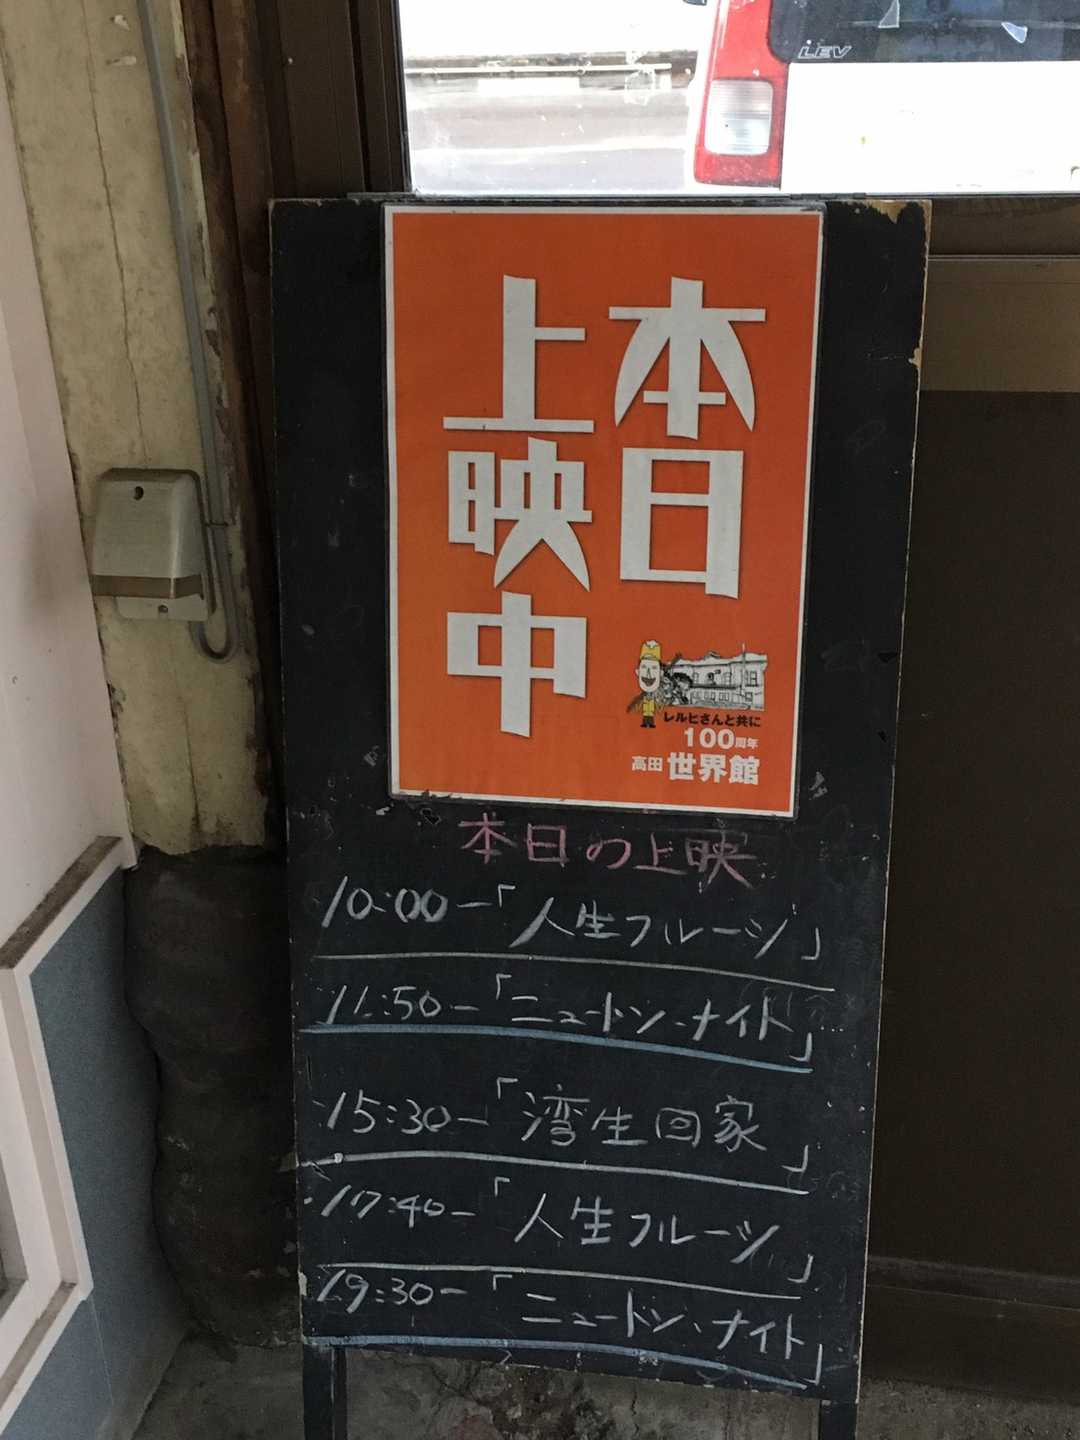 LEV
本日
上映中
レルヒさんと共に
100周年
高田 世界館
本日の上映
10:00-「人生フルーツ」
11:50-「ニュートン・ナイト」
15:30-「湾生回家」
17:40-「人生フルーツ」
19:30-「ニュートン・ナイト」